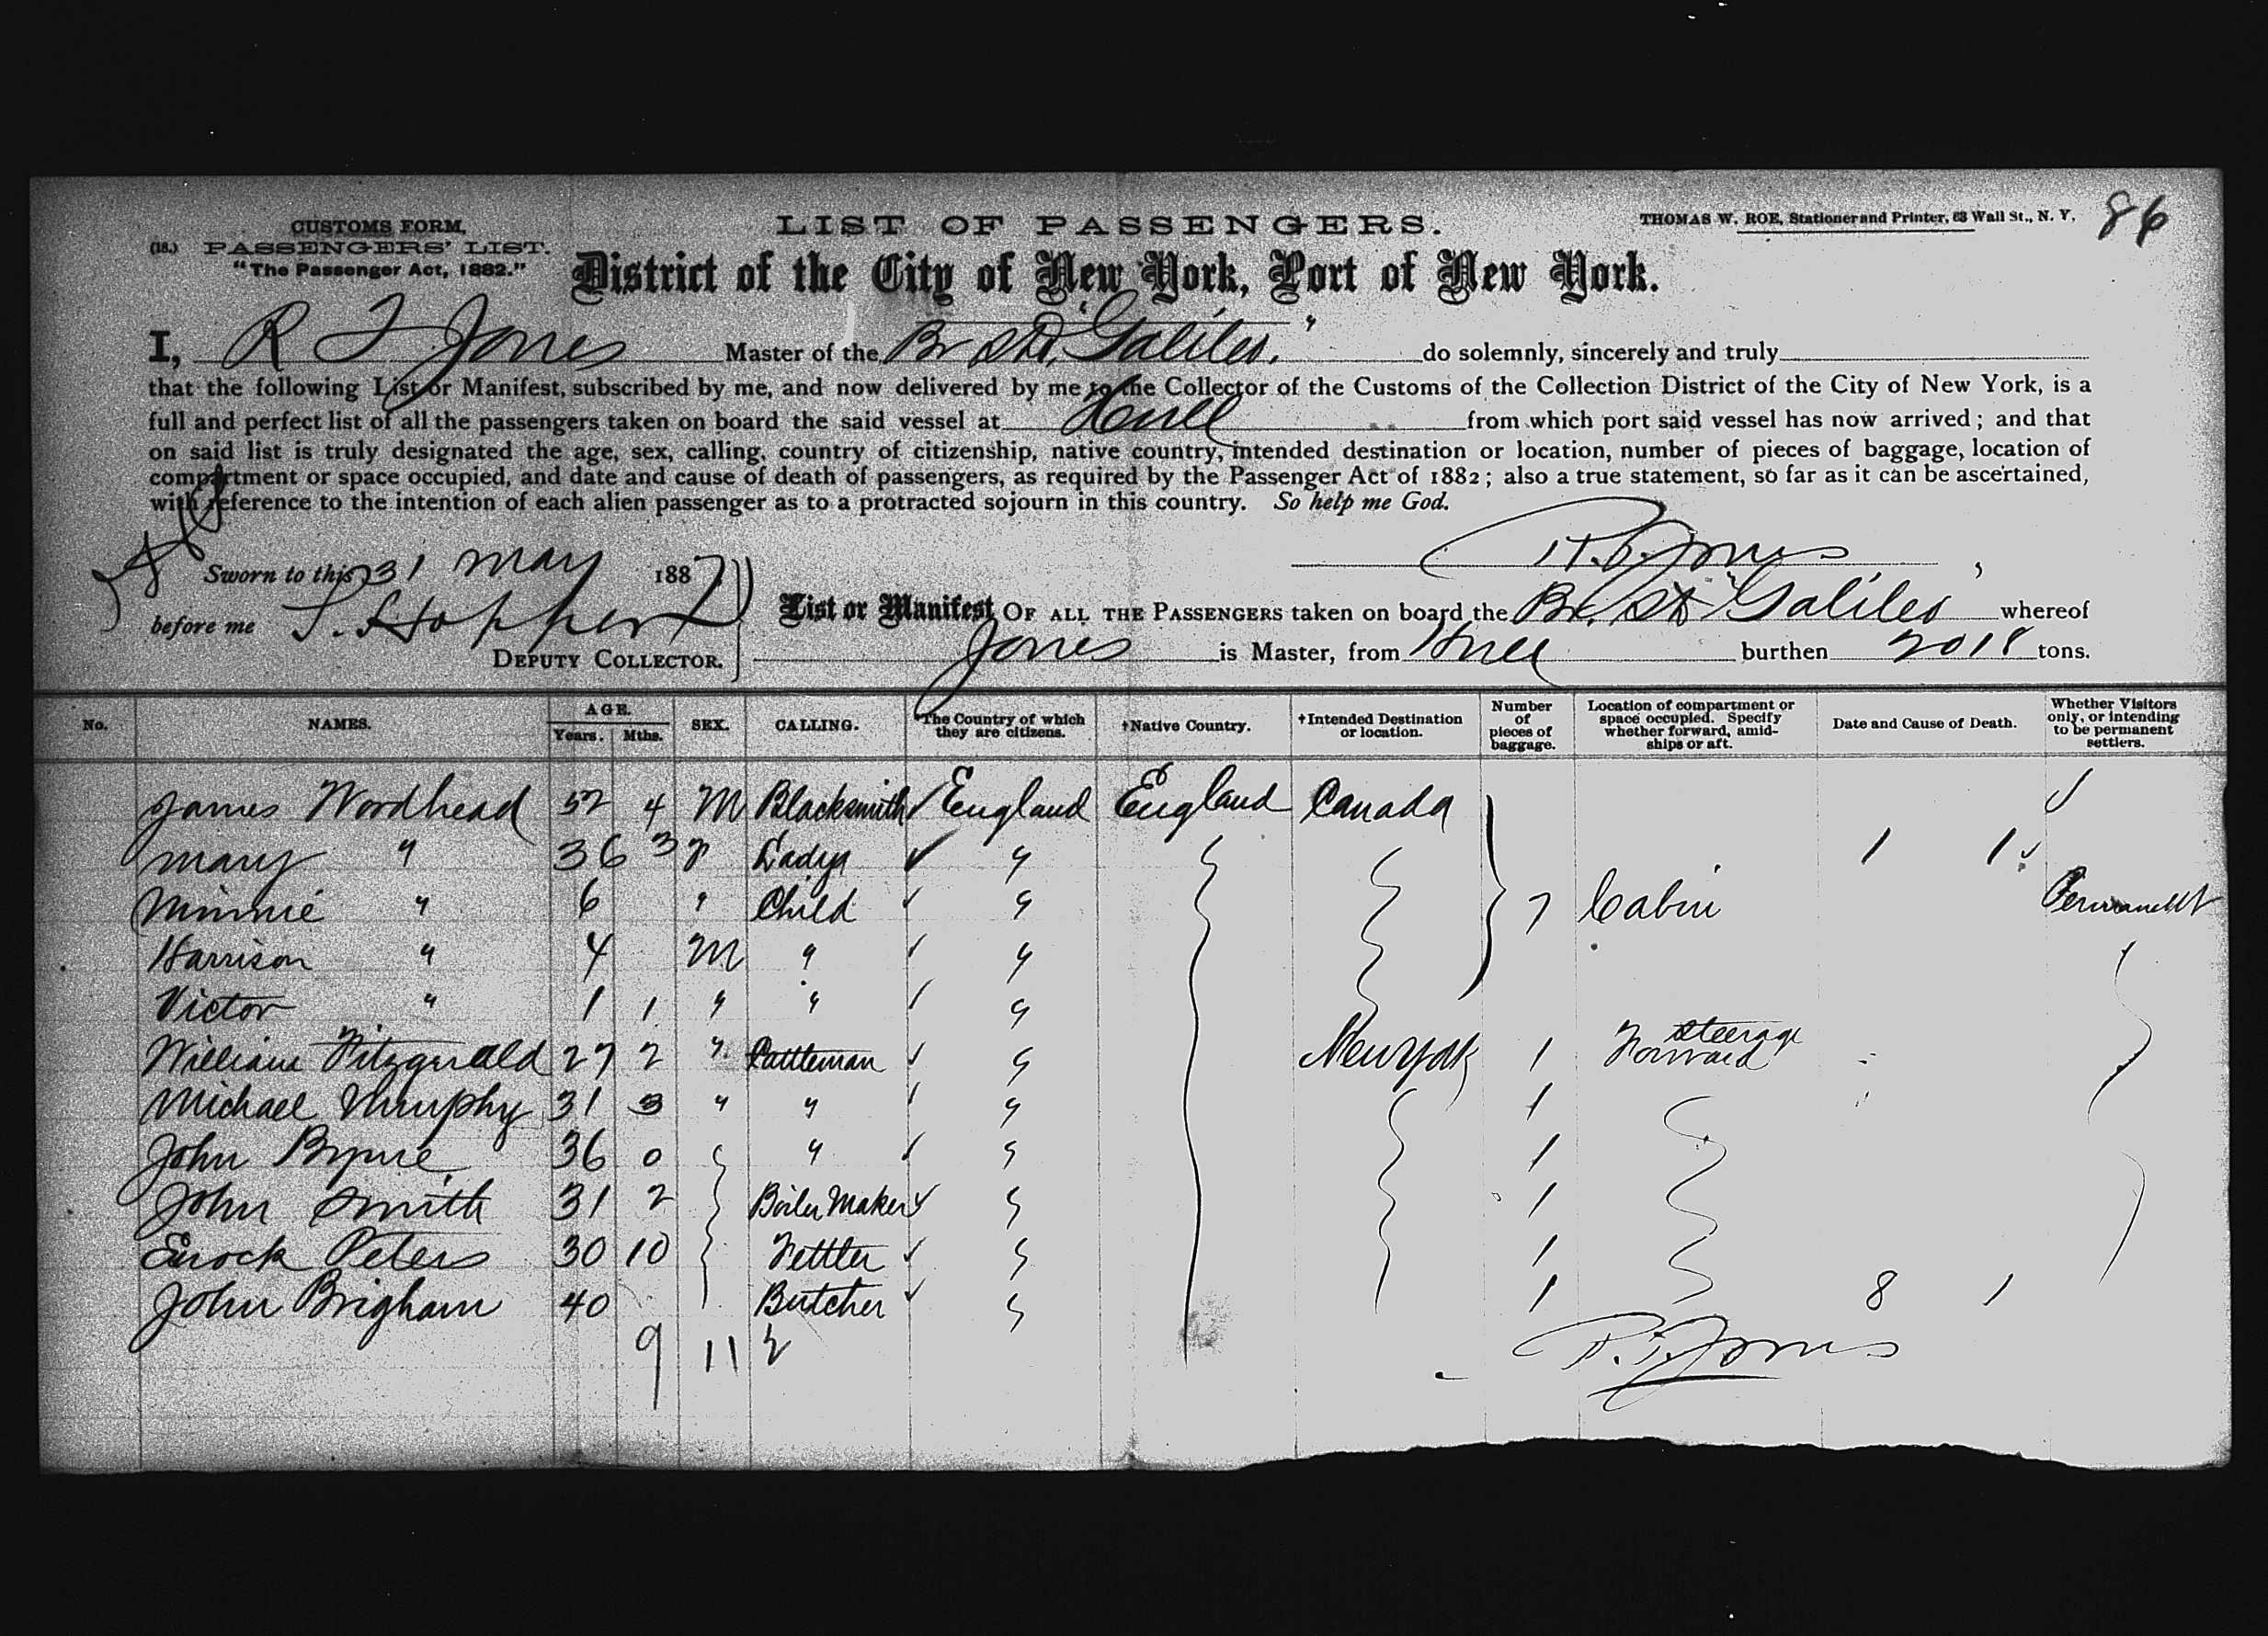 86
CUSTOMS FORM,
(18.) PASSENGERS' LIST.
"The Passenger Act, 1882."
LIST OF PASSENGERS.
THOMAS W. ROE, Stationer and Printer, 63 Wall St., N. Y.
District of the City of New York, Port of New York.
I, R T Jones Master of the Br Str "Galileo." do solemnly, sincerely and truly
that the following List or Manifest, subscribed by me, and now delivered by me to the Collector of the Customs of the Collection District of the City of New York, is a
full and perfect list of all the passengers taken on board the said vessel at Hull from which port said vessel has now arrived; and that
on said list is truly designated the age, sex, calling, country of citizenship, native country, intended destination or location, number of pieces of baggage, location of
compartment or space occupied, and date and cause of death of passengers, as required by the Passenger Act of 1882; also a true statement, so far as it can be ascertained,
with reference to the intention of each alien passenger as to a protracted sojourn in this country. So help me God.
R. T. Jones
Sworn to this 31 May 1887
before me
DEPUTY COLLECTOR.
List or Manifest OF ALL THE PASSENGERS taken on board the Br. Str "Galileo" whereof
Jones is Master, from Hull burthen 2018 tons.
No. NAMES. AGE. Years. Mths. SEX. CALLING. *The Country of which they are citizens. †Native Country. †Intended Destination or location. Number of pieces of baggage. Location of compartment or space occupied. Specify whether forward, amidships or aft. Date and Cause of Death. Whether Visitors only, or intending to be permanent settlers.
James Woodhead 52 4 M Blacksmith ✓ England England Canada ✓
Mary " 36 3 F Lady ✓ " 1 1 ✓
Minnie " 6 " Child ✓ " 7 Cabin Permanent
Harrison " 4 M " ✓ "
Victor " 1 1 " " ✓ "
William Fitzgerald 27 2 " Cattleman ✓ " New York 1 Steerage Forward
Michael Murphy 31 3 " " ✓ " 1
John Byrne 36 0 " ✓ " 1
John Smith 31 2 Boiler Maker ✓ " 1
Enock Peters 30 10 Fettler ✓ " 1
John Brigham 40 Butcher ✓ " 1 8 1
9 11 2
R. T. Jones